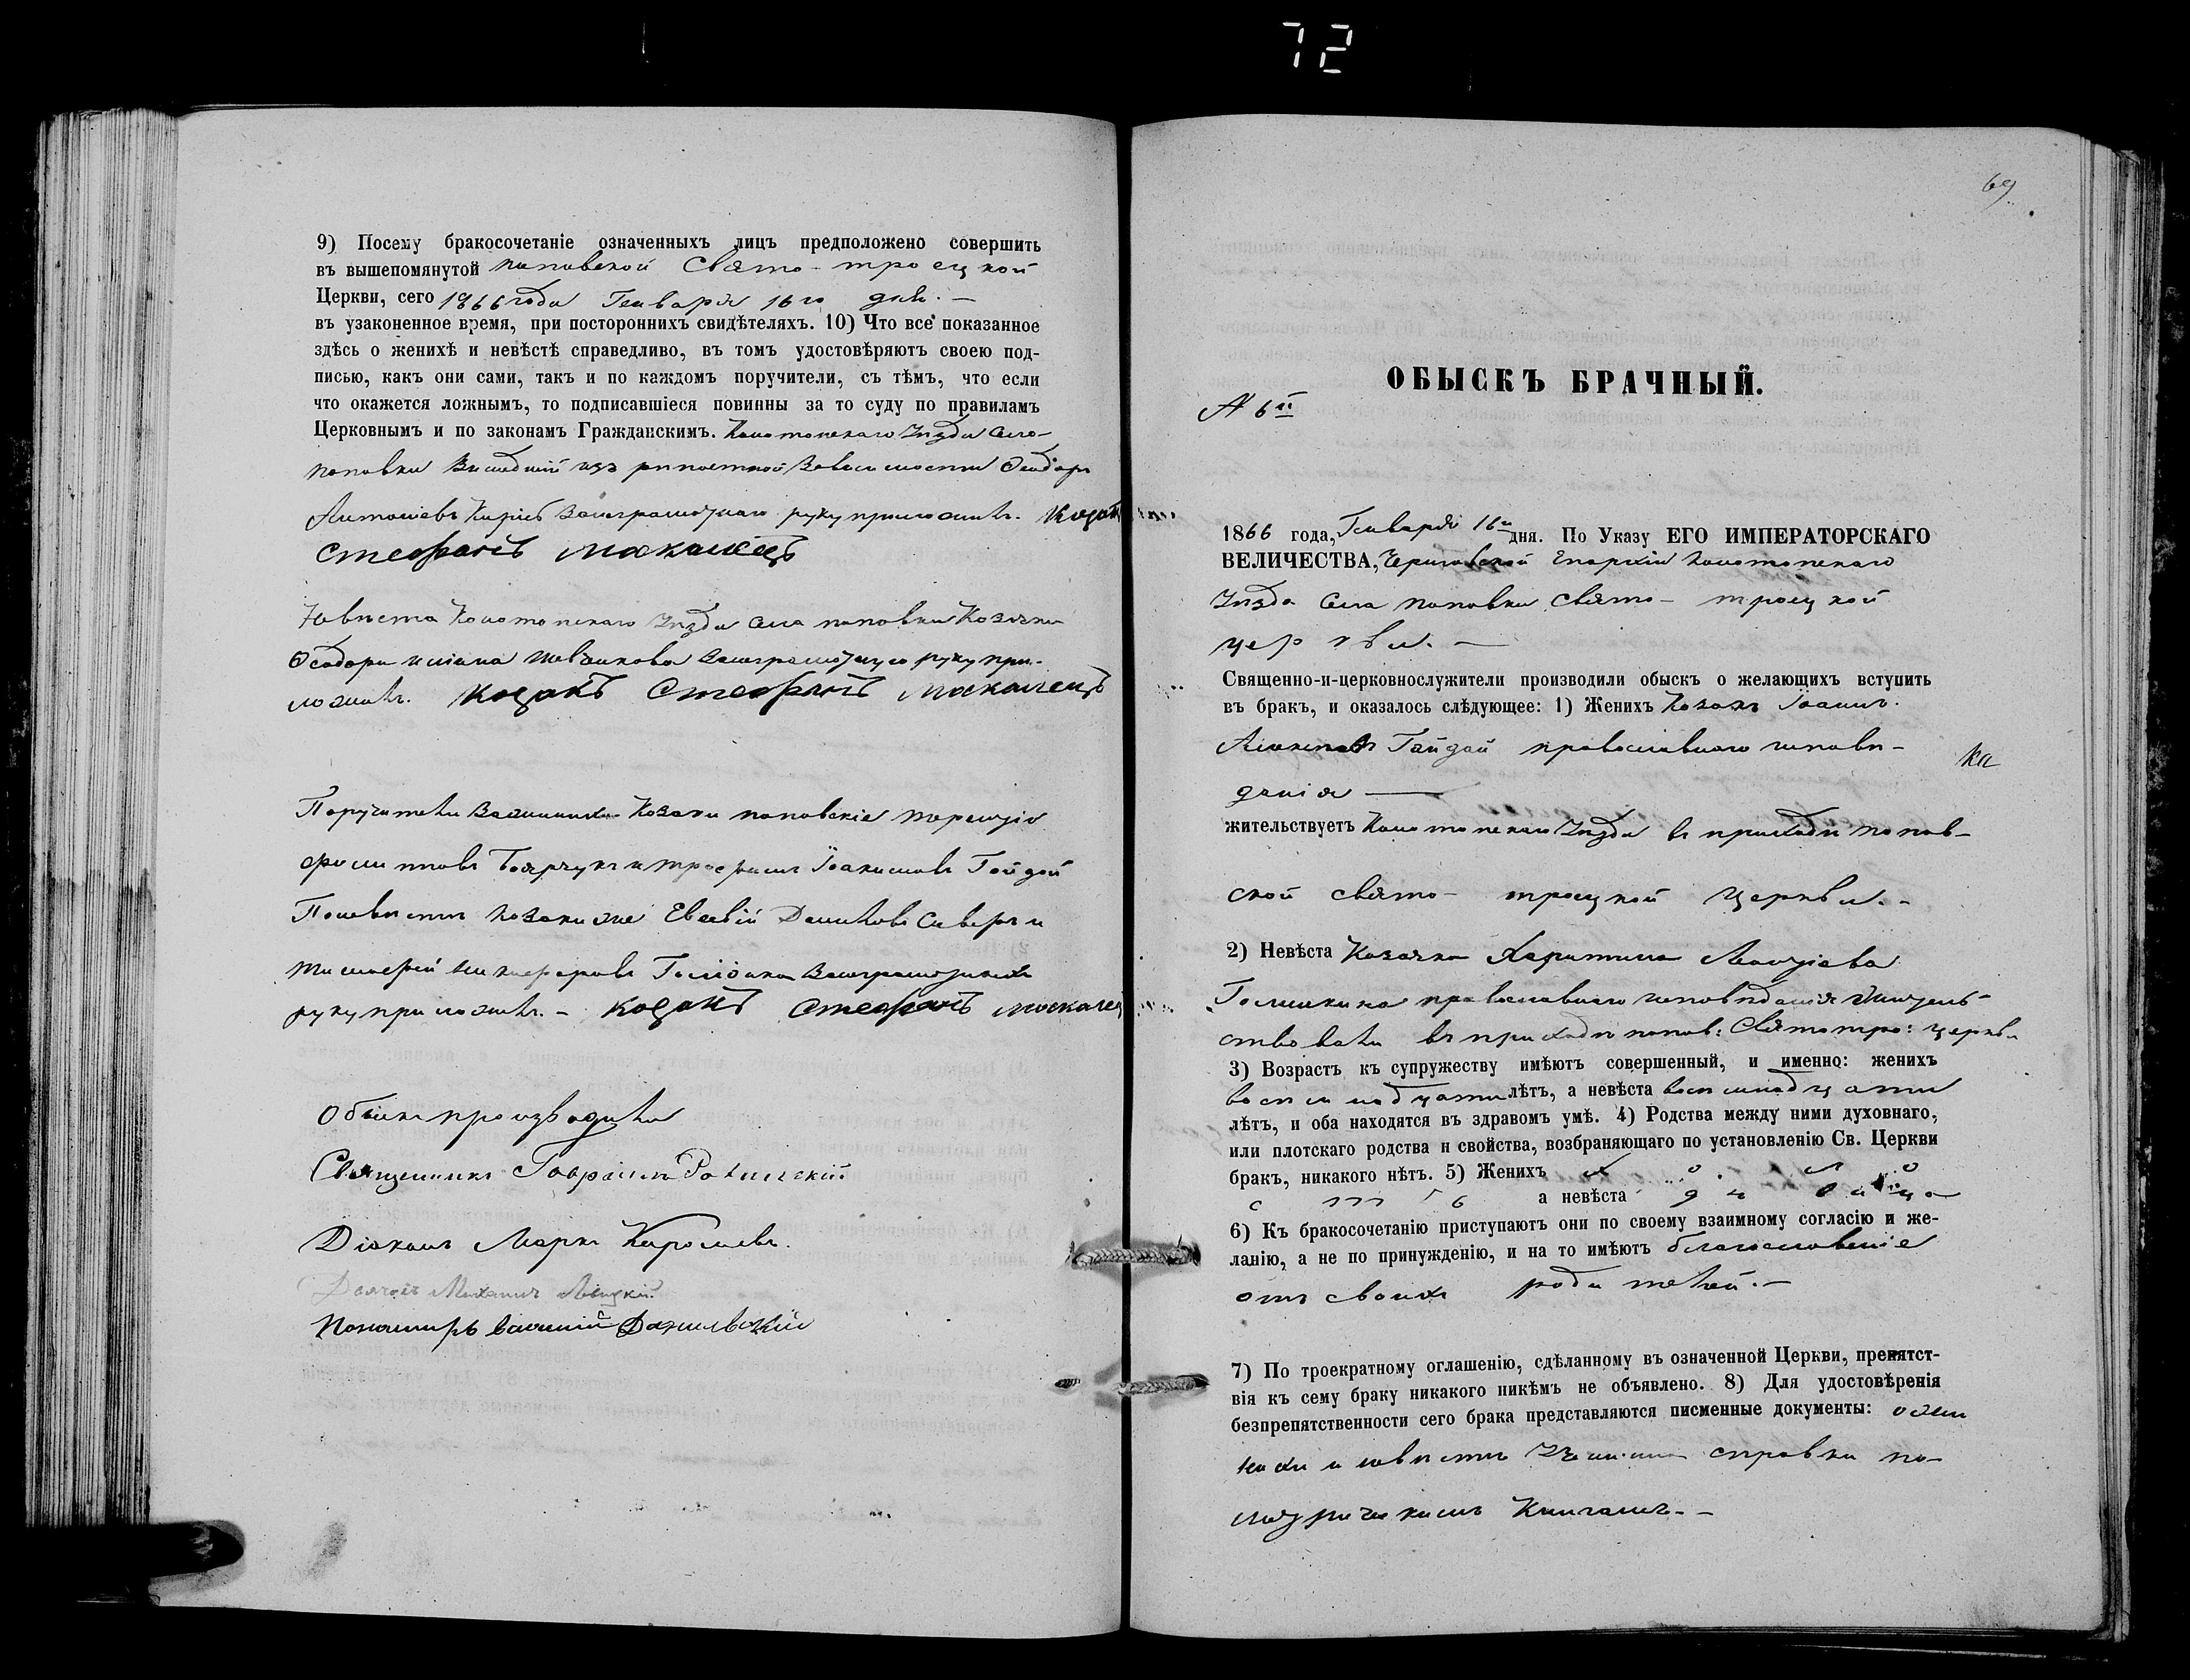 72
9) Посему бракосочетаніе означенныхъ лицъ предположено совершить
въ вышепомянутой поповской Свято-троецкой
Церкви, сего 1866 года Генваря 16го дня. —
въ узаконенное время, при постороннихъ свидѣтеляхъ. 10) Что все показанное
здѣсь о женихѣ и невѣстѣ справедливо, въ томъ удостовѣряютъ своею под-
писью, какъ они сами, такъ и по каждомъ поручители, съ тѣмъ, что если
что окажется ложнымъ, то подписавшіеся повинны за то суду по правиламъ
Церковнымъ и по законамъ Гражданскимъ. Конотопскаго Уѣзда Села
поповки изъ Зависимости Феодоръ
Антоніевъ руку приложилъ. Козакъ
Стефанъ Москалецъ
Невѣста Конотопскаго Уѣзда Села поповки Козачка
руку при-
ложилъ. Козакъ Стефанъ Москалецъ
Поручители Козаки поповскіе
Боярчукъ и Трофимъ Іоакимовъ Гайдай
По невѣстѣ козаки же Евсевій Даниловъ Северъ и
Тимофей Никифоровъ
руку приложилъ. - Козакъ Стефанъ Москалец
Обыскъ производили
Священникъ Гавріилъ
Діаконъ Маркъ
Дьячокъ Михаилъ Левицкій
Пономарь Василій Данилевскій
69
ОБЫСКЪ БРАЧНЫЙ.
№ 6й
1866 года, Генваря 16 дня. По Указу ЕГО ИМПЕРАТОРСКАГО
ВЕЛИЧЕСТВА, Черниговской Епархіи Конотопскаго
Уѣзда Села Поповки Свято-троецкой
церкви. —
Священно-и-церковнослужители производили обыскъ о желающихъ вступить
въ бракъ, и оказалось слѣдующее: 1) Женихъ Козакъ Іоаннъ
Гайдай православнаго исповѣ-
данія —
жительствуетъ Конотопскаго Уѣзда въ приходѣ попов-
ской свято-троецкой Церкви. -
2) Невѣста Козачка Харитина
православнаго исповѣданія Житель-
ствовала въ приходѣ попов: Святотро: церкви
3) Возрастъ къ супружеству имѣютъ совершенный, и именно: женихъ
восемнадцати лѣтъ, а невѣста восемнадцати
лѣтъ, и оба находятся въ здравомъ умѣ. 4) Родства между ними духовнаго,
или плотскаго родства и свойства, возбраняющаго по установленію Св. Церкви
бракъ, никакого нѣтъ. 5) Женихъ хо ло
стъ а невѣста дѣвица
6) Къ бракосочетанію приступаютъ они по своему взаимному согласію и же-
ланію, а не по принужденію, и на то имѣютъ благословеніе
отъ своихъ родителей. —
7) По троекратному оглашенію, сдѣланному въ означенной Церкви, препятст-
вія къ сему браку никакого никѣмъ не объявлено. 8) Для удостовѣренія
безпрепятственности сего брака представляются писменные документы: о жени
хѣ и невѣстѣ справки по
метрическимъ Книгамъ. -